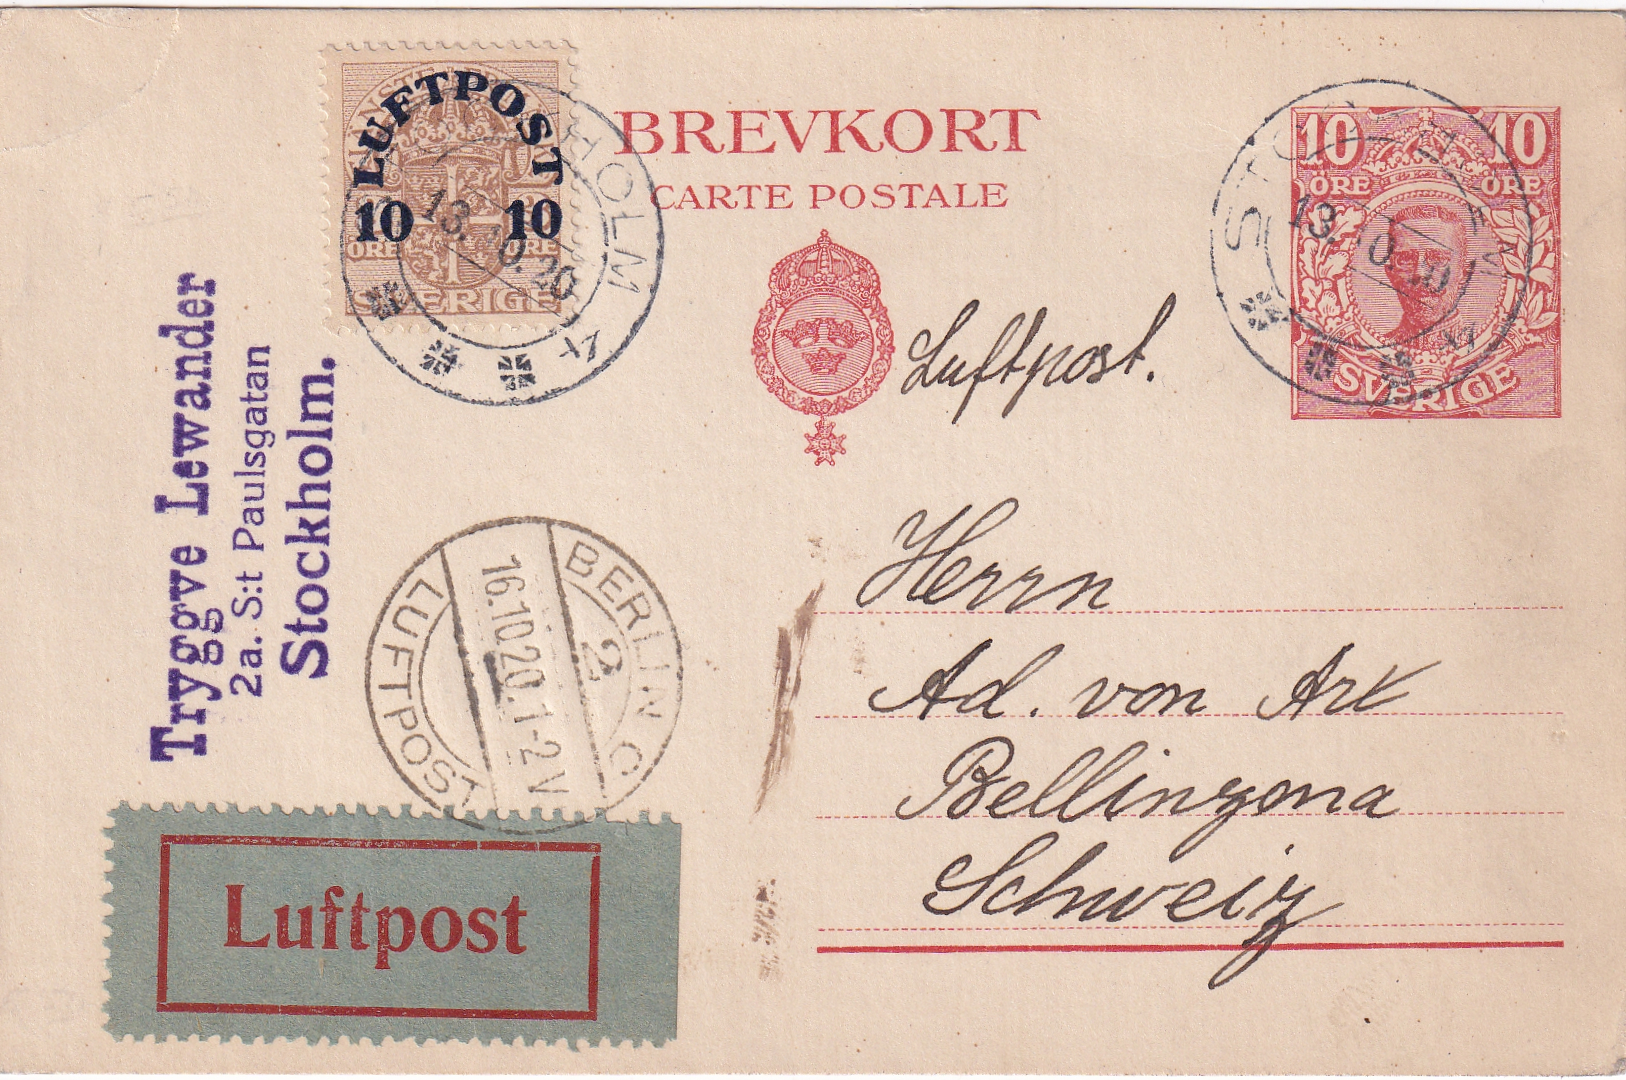 BREVKORT
CARTE POSTALE
LUFTPOST
10 10
ÖRE ÖRE
SVERIGE
HOLM 4
13.10.20
10 10
ÖRE ÖRE
SVERIGE
STOCKHOLM
13.10.20
Luftpost.
Tryggve Lewander
2a. S:t Paulsgatan
Stockholm.
BERLIN C
2
16.10.20.1-2V
LUFTPOST
Herrn
Ad. von Arx
Bellinzona
Schweiz
Luftpost